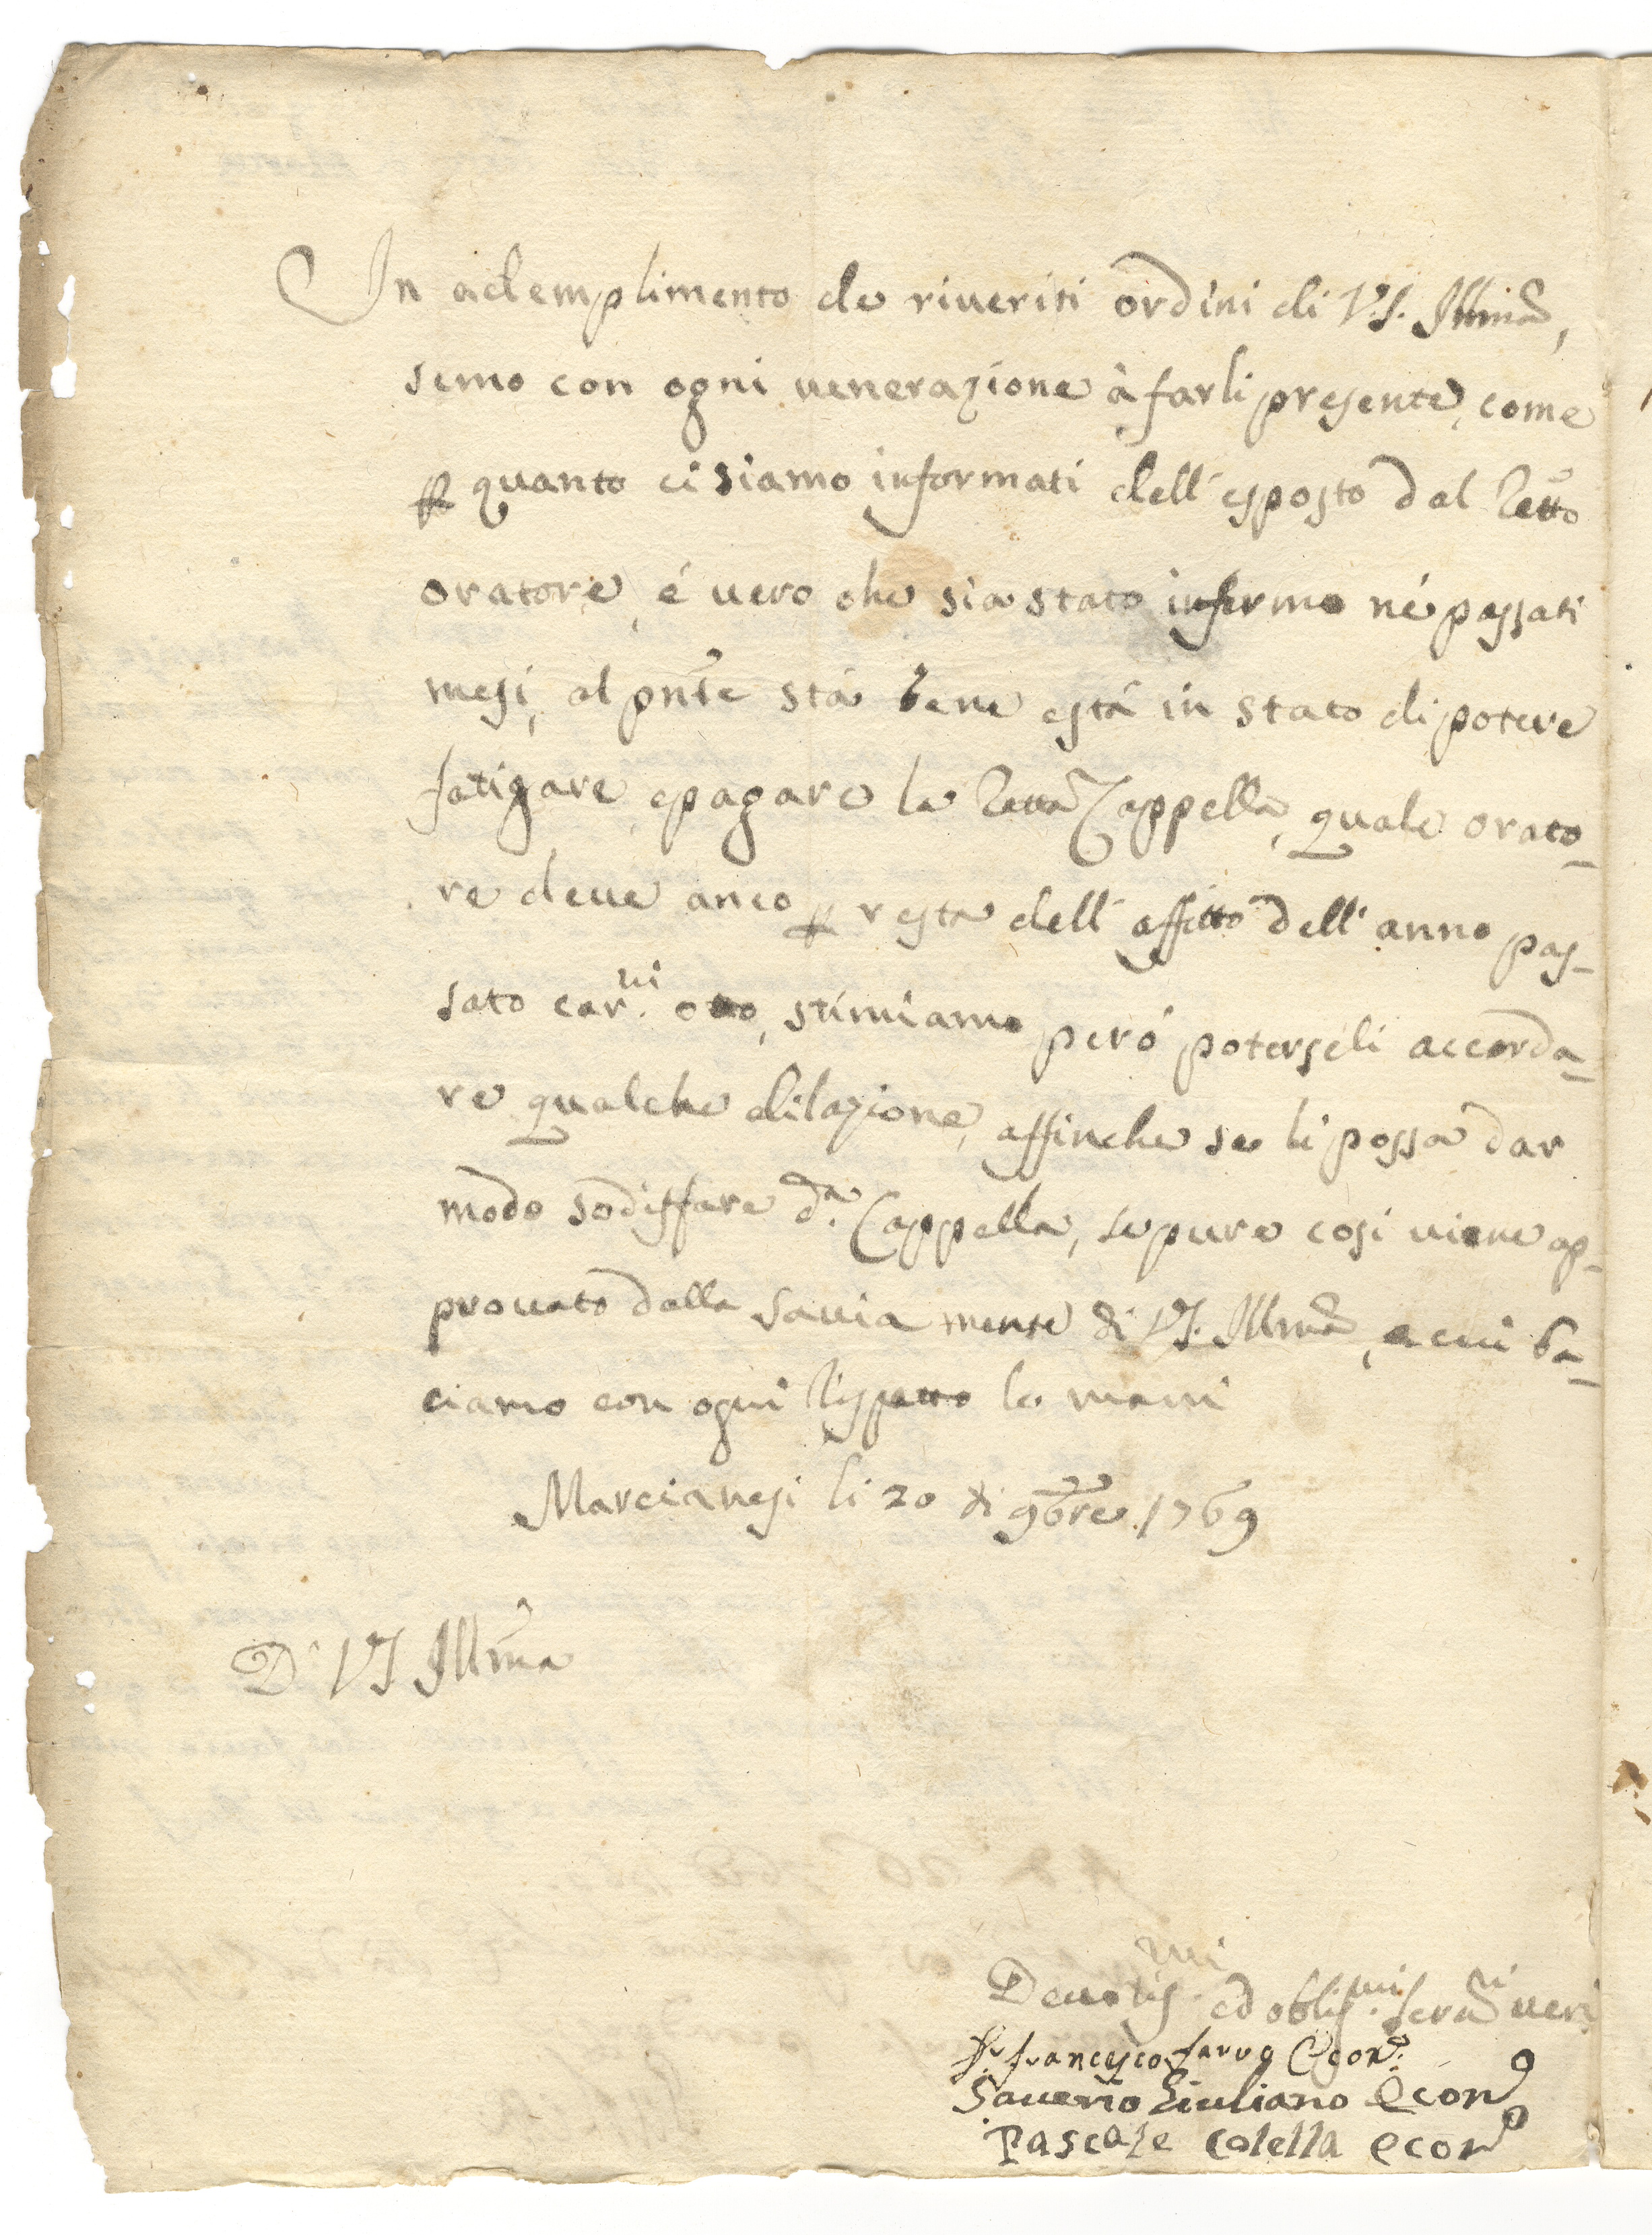 In adempimento de riueriti ordini di V.S. Illma,
semo con ogni uenerazione à farli presente, come
p quanto ci siamo informati dell'esposto dal rettō
oratore, é uero che sia stato infermo né passati
mesi, al pnte stà bene e stá in stato di potere
fatigare, e pagare la retta Cappella, quale orato-
re deue anco p resta dell'affitto dell'anno pas-
sato car.ni otto, stimiamo peró poterseli accorda-
re qualche dilazione, affinche se li possa dar
modo sodisffare d.a Cappella, se pure cosi uiene ap-
prouato dalla sauia mente di VS. Illma, a cui ba-
ciamo con ogni rispetto le mani
Marcianesi li 20 di 9bre. 1769
D' VS Illma
Deuotis.mi ed oblis.mi seru.ri ueri
Francesco Econ.o
Sauerio Giuliano Econ.o
Pascale Colella econ.o